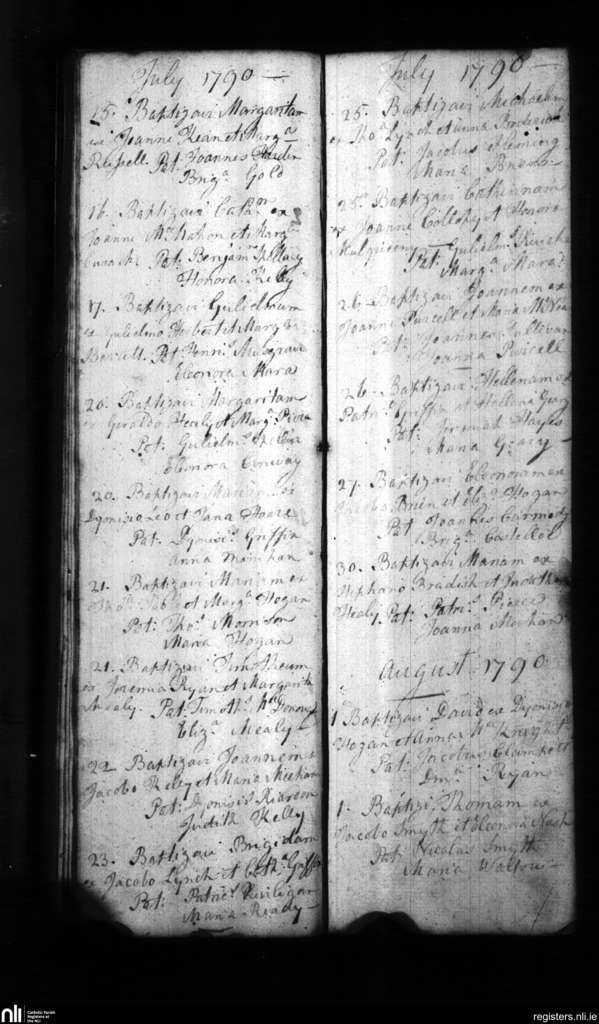 July 1790 —
15. Baptizavi Margaritam
ex Joanne Kean et Marga
Russell. Pat. Joannes
Briga Gold
16. Baptizavi Cathm ex
Joanne McMahon et Marga
Pat. Benjamn Hellary
Honora Kelly
17. Baptizavi Gulielmum
ex Gulielmo Herbert et Marga
Pat.
Eleonora Mara
20. Baptizavi Margaritam
ex Geraldo Healy et Marga
Pat: Gulielms
Eleonora Conway
20. Baptizavi Mariam ex
Dyonisio Leo et Jana Hoare
Pat. Dyonis: Griffin
Anna Monahan
21. Baptizavi Mariam ex
Thos et Marga Hogan
Pat: Thos Morrison
Maria Hogan
21. Baptizavi Timotheum
ex Jeremia Ryan et Margarita
Mealy. Pat. Timoths
Eliza Mealy —
22 Baptizavi Joannem ex
Jacobo Kelly et Maria Meehan
Pat: Dyonisis Riardon
Judith Kelly
23. Baptizavi Brigidam
ex Jacobo Lynch et Catha Griffin
Pat: Patrics
Maria Ready —
July 1790 —
25. Baptizavi Michaelm
ex Thoa Lynch et Anna
Pat: Jacobus Fleming
Maria
25. Baptizavi Cathinnam
ex Joanne Collopy et Honora
Pat: Gulielms
Marga Mara
26 Baptizavi Joannem ex
Joanne Purcell et Maria
Pat: Joannes Sullivan
Joanna Purcell
26 Baptizavi Hellenam ex
Patri: Griffin et Hellena
Pat: Jeremiah Hayes
Maria
27. Baptizavi Eleonoram ex
Jacobo Brien et Eliza Hogan
Pat Joannes Carmody
Briga Castello
30. Baptizavi Mariam ex
Stephano Bradish et
Healy. Pat: Patri: Pierce
Joanna Meehan
August 1790
1 Baptizavi David ex Dyonisio
Hogan et Anna
Pat: Jacobus
Ryan
1. Baptizi Thomam ex
Jacobo Smyth et Leonora Nash
Pat: Nicolas Smyth
Maria Walton —
nli
Catholic Parish
Registers at
the NLI
registers.nli.ie